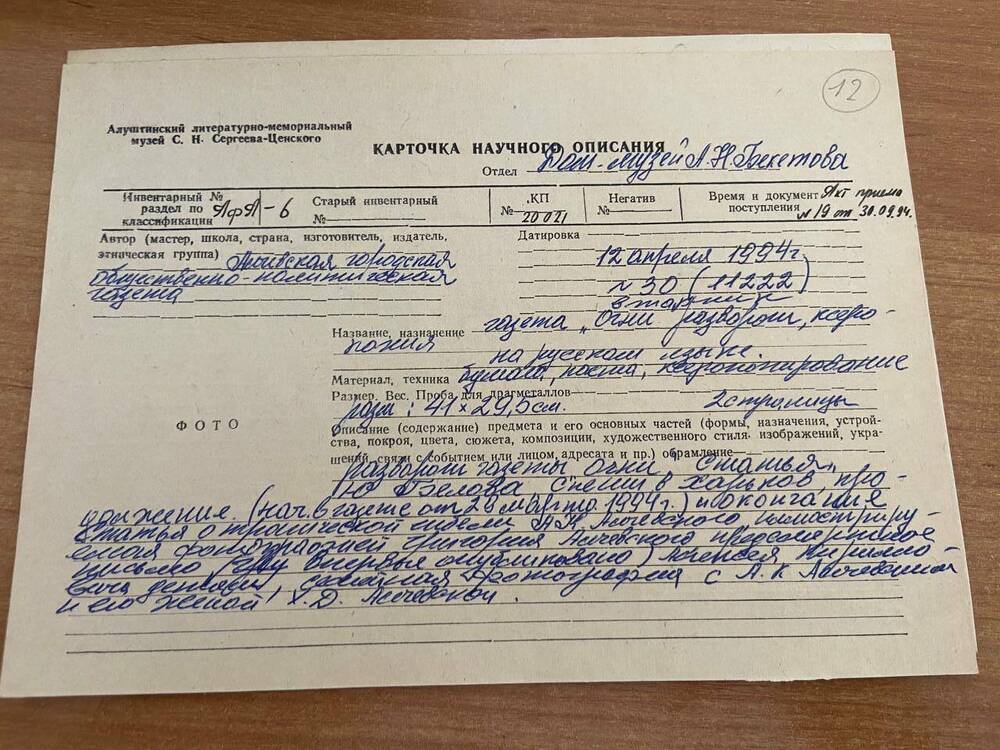 12
Алуштинский литературно-мемориальный
музей С. Н. Сергеева-Ценского
КАРТОЧКА НАУЧНОГО ОПИСАНИЯ
Отдел Дом-музей А.Н. Бекетова
Инвентарный №
раздел по
классификации АфЛ-6
Старый инвентарный
№
КП
№ 20021
Негатив
№
Время и документ
поступления Акт приема
№ 19 от 30.09.94.
Автор (мастер, школа, страна, изготовитель, издатель,
этническая группа) городская
общественно-политическая
газета
Датировка
12 апреля 1994 г.
№ 30 (11222)
вторник
Название, назначение газета „Огни разворот, ксеро-
копия
на русском языке.
Материал, техника бумага, паста, ксерокопирование
Размер. Вес. Проба для драгметаллов
разм: 41×29,5 см. 2 страницы
ФОТО
Описание (содержание) предмета и его основных частей (формы, назначения, устрой-
ства, покроя, цвета, сюжета, композиции, художественного стиля изображений, укра-
шений, связи с событием или лицом, адресата и пр.) обрамление
разворот газеты Огни, статья
Ю Белова Спешив Харьков про-
должение (нач. в газете от марта 1994 г.) и окончание
статья о трагической гибели А.К. Алчевского, иллюстриру-
фотографией Григория Алчевского предсмертное
письмо впервые опубликовано) Алексея Кирилло-
вича детям, семейная фотография с А.К Алчевским
и его женой Х.Д. Алчевской.